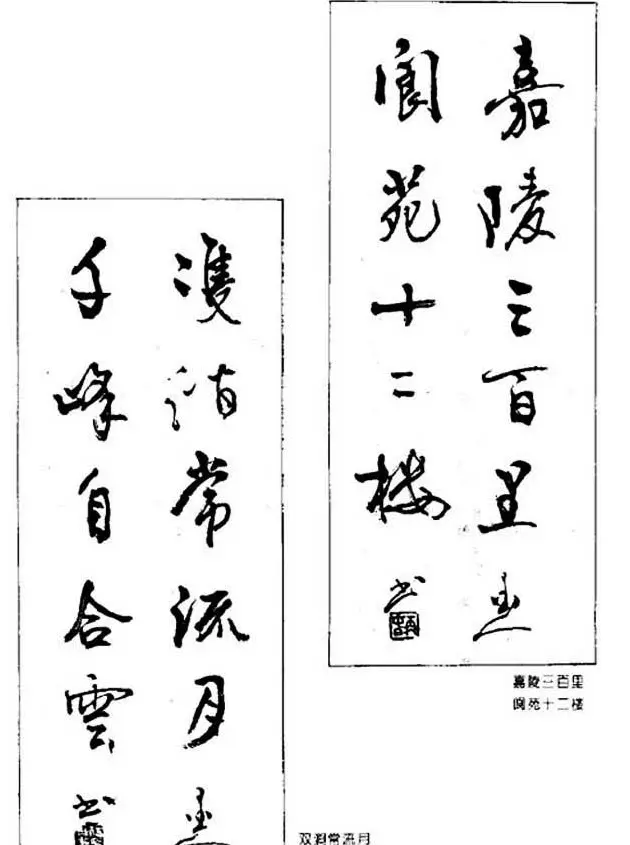 嘉陵三百里
阆苑十二楼
书
嘉陵三百里
阆苑十二楼
雙澗常流月
千峰自合雲
书
双涧常流月